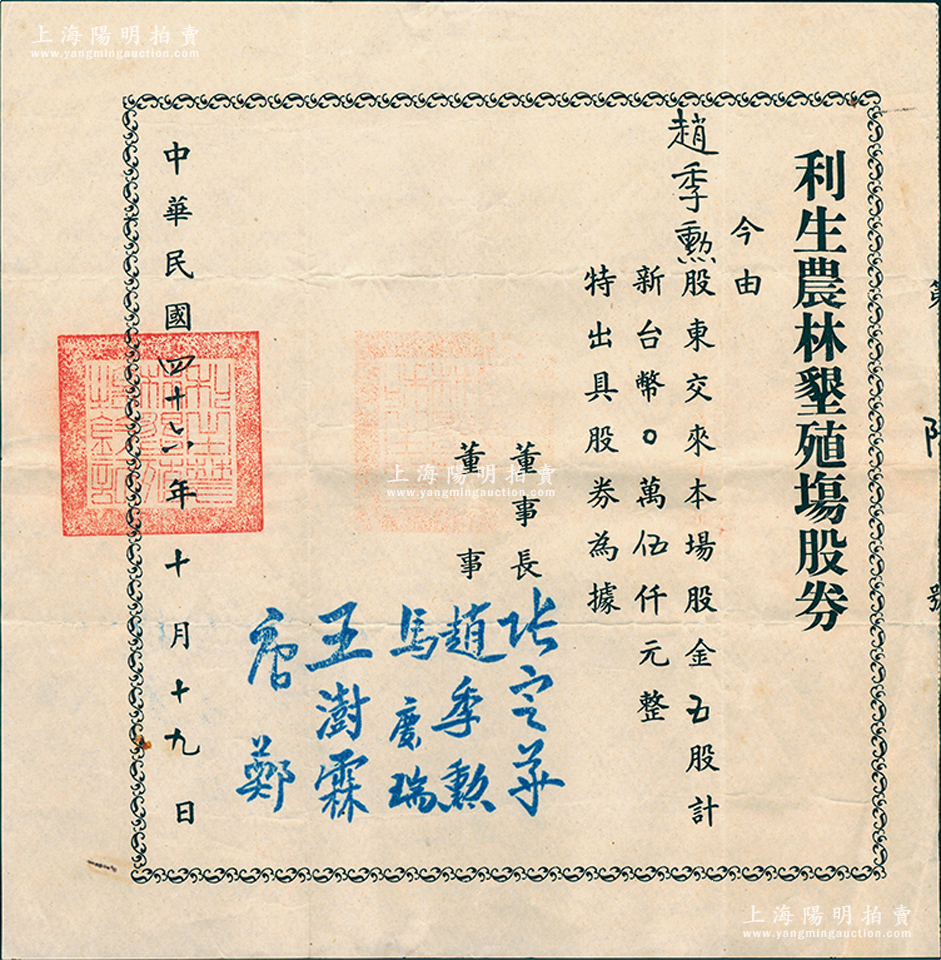 上海陽明拍賣
www.yangmingauction.com
利生農林墾殖場股券
今由
趙季勲股東交來本場股金五股計
新台幣0萬伍仟元整
特出具股券為據
董事長 張定華
董事 趙季勲
馬慶瑞
王澍霖
唐鄭
中華民國四十六年十月十九日
上海陽明拍賣
www.yangmingauction.com
上海陽明拍賣
www.yangmingauction.com